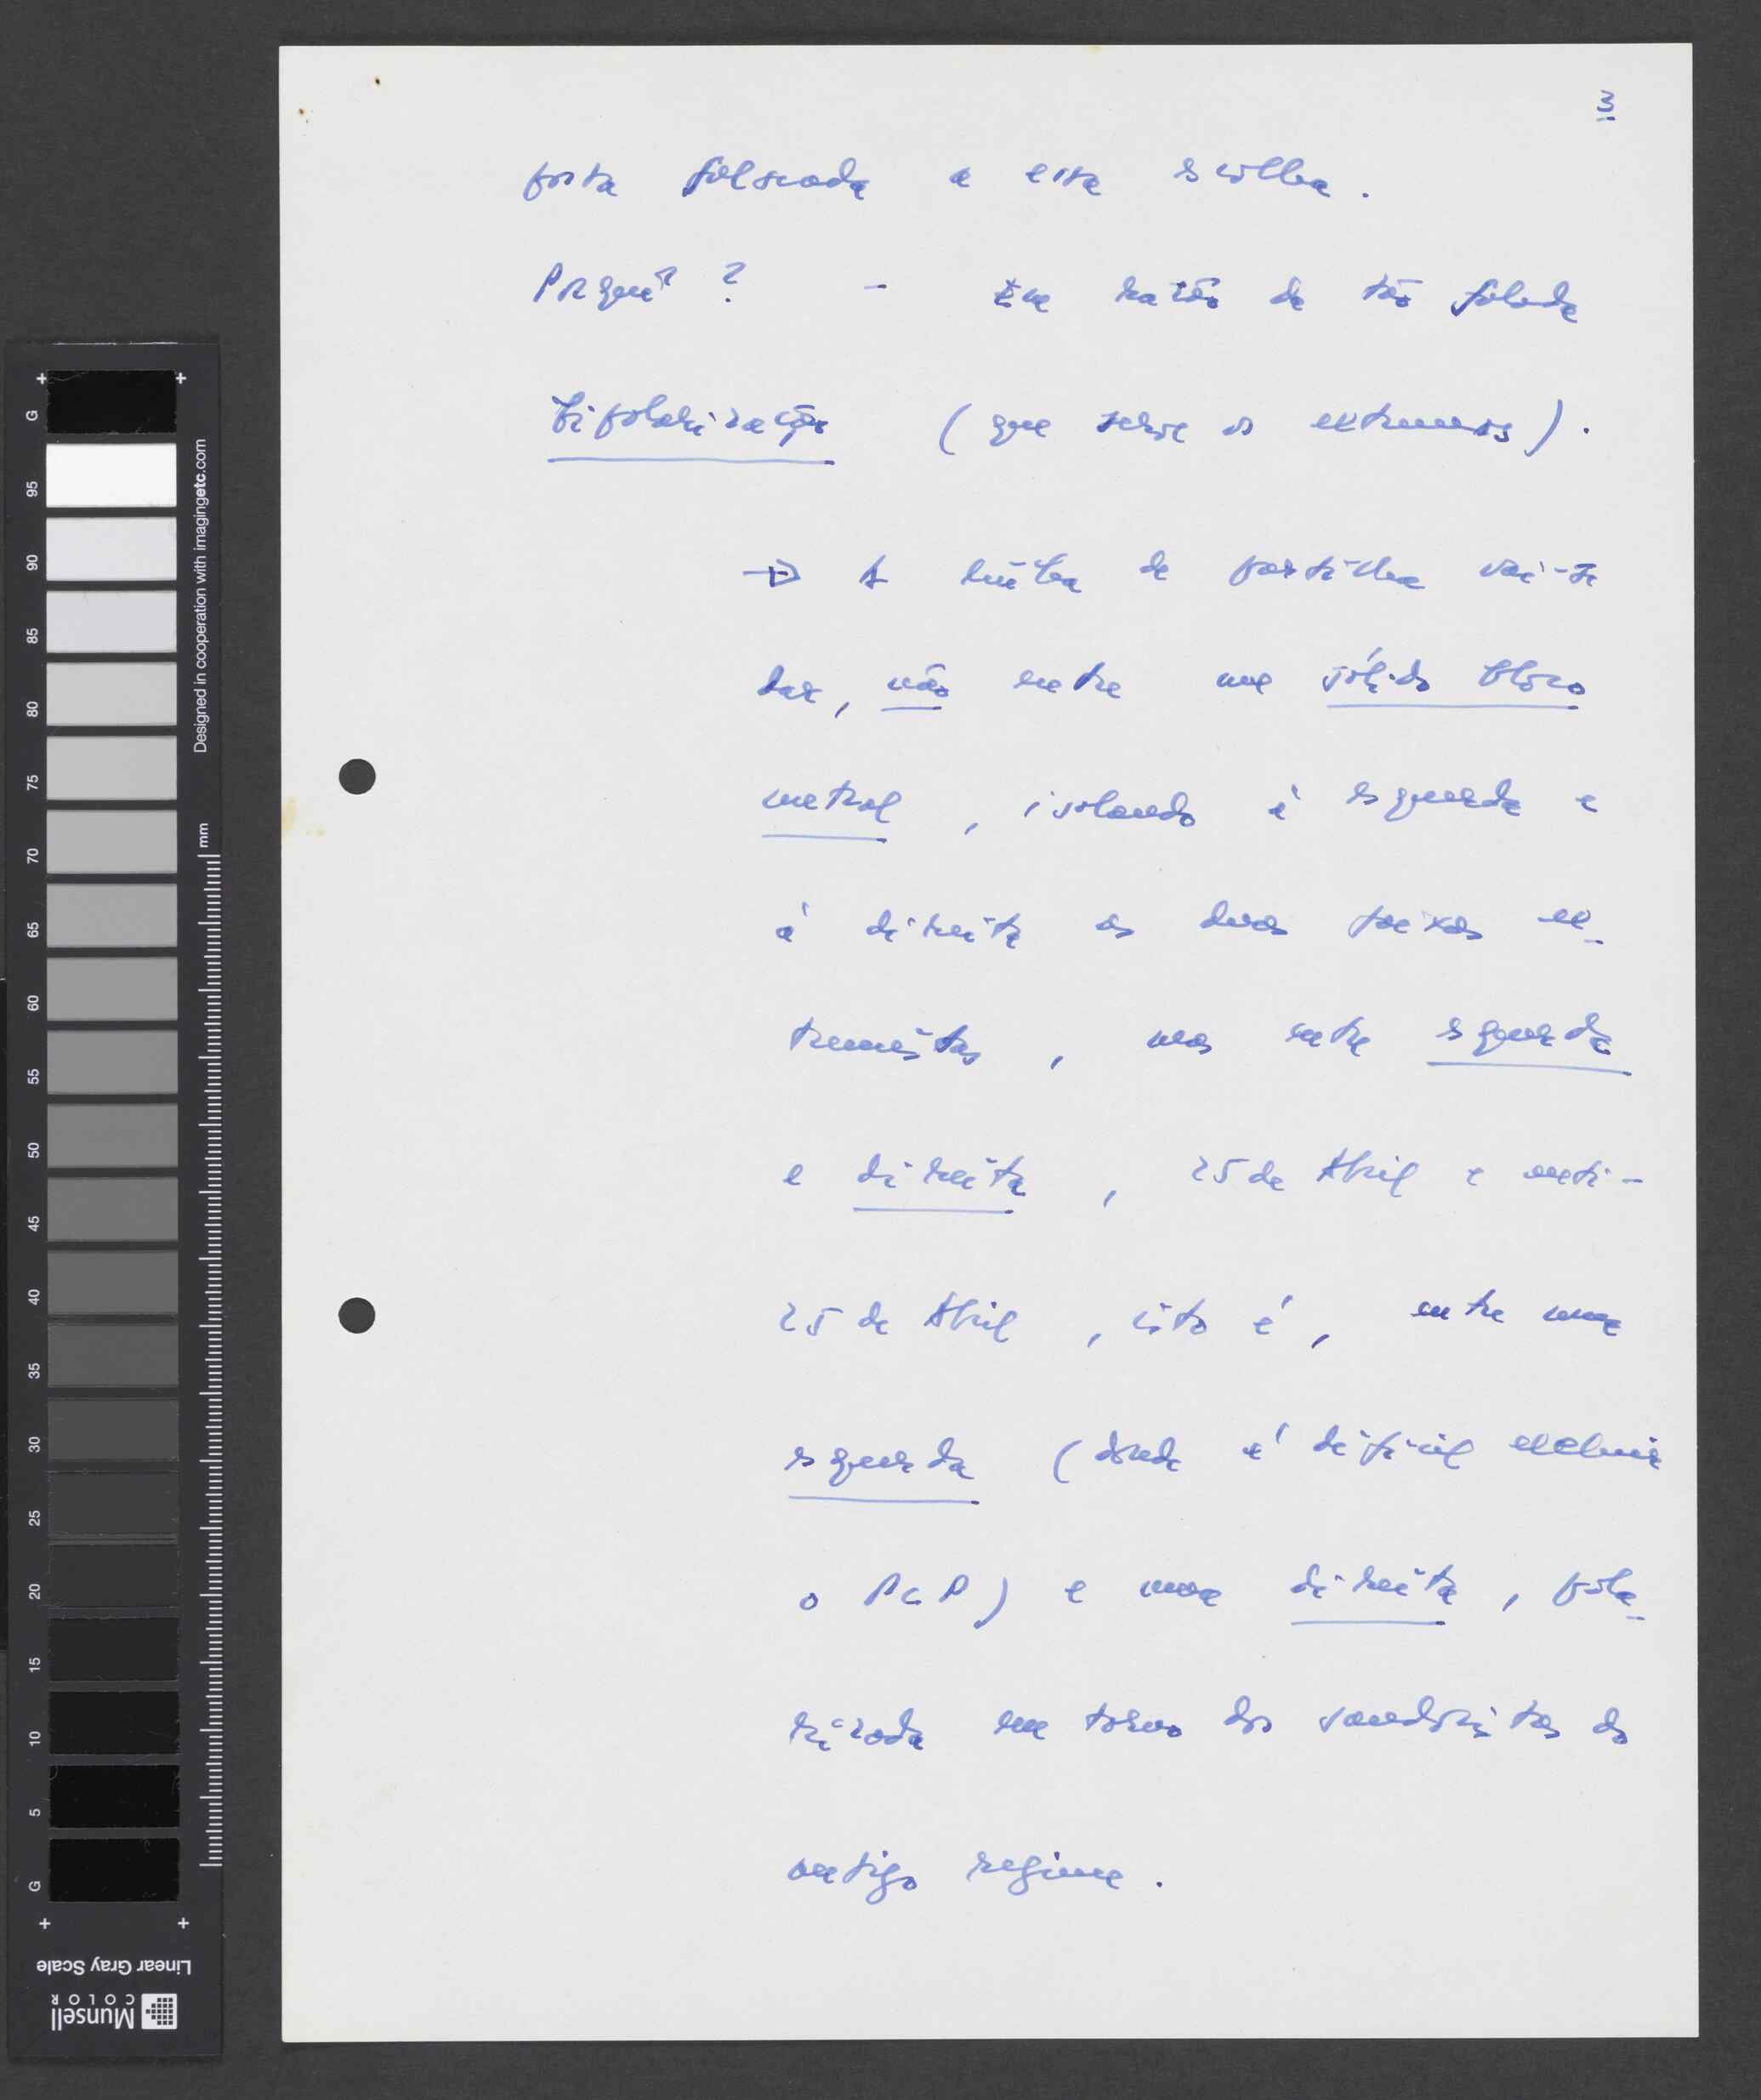 3
posta falseada a essa escolha.
Porquê? - Em razão da tão falada
bipolarização (que serve os extremos).
→ A linha de partilha vai-se
dar, não entre um sólido bloco
central, isolando à esquerda e
à direita as duas faixas ex-
tremistas, mas entre esquerda
e direita, 25 de Abril e anti-
25 de Abril, isto é, entre uma
esquerda (donde é difícil excluir
o PCP) e uma direita, pola-
rizada em torno dos saudosistas do
antigo regime.
G 95 90 85 80 75 70 65 60 55 50 45 40 35 30 25 20 15 10 5 G
Designed in cooperation with imagingetc.com
mm
Linear Gray Scale
Munsell
COLOR